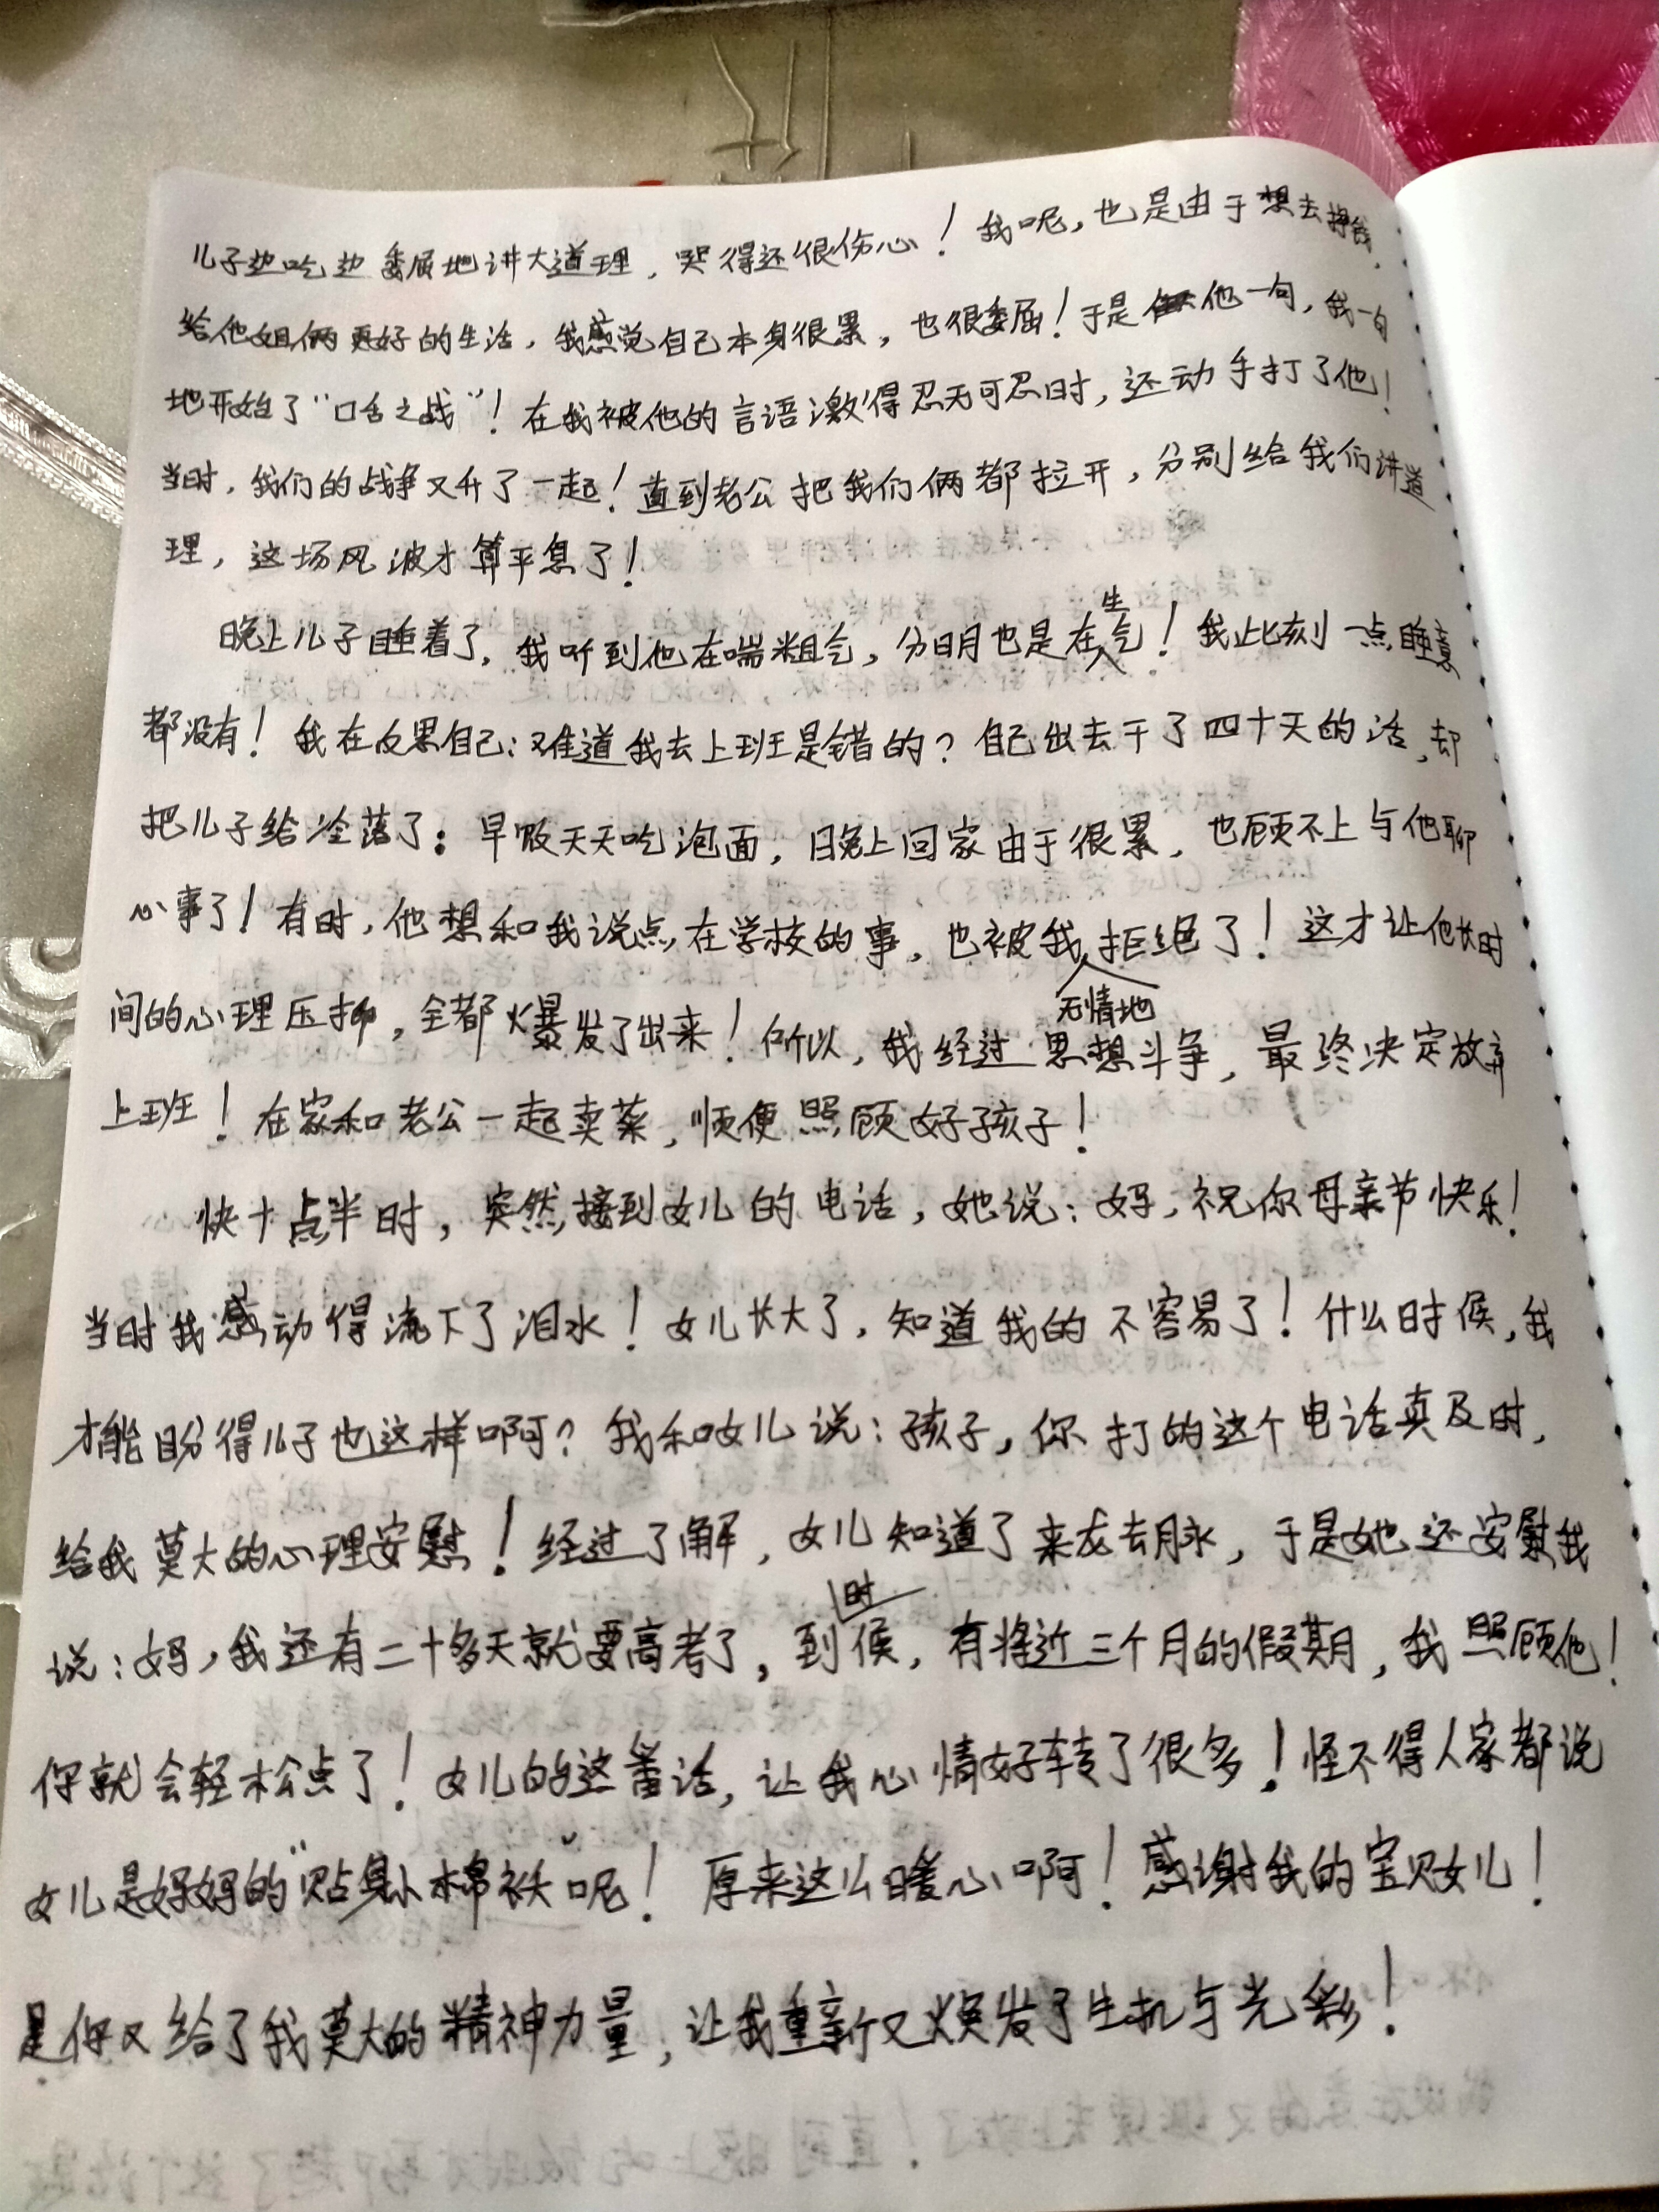 儿子边吃边委屈地讲大道理，哭得还很伤心！我呢，也是由于想去挣钱，
给他姐俩更好的生活，我感觉自己本身很累，也很委屈！于是他一句，我一句
地开始了“口舌之战”！在我被他的言语激得忍无可忍时，还动手打了他！
当时，我们的战争又升了一起！直到老公把我们俩都拉开，分别给我们讲道
理，这场风波才算平息了！
晚上儿子睡着了，我听到他在喘粗气，分明也是在生气！我此刻一点睡意
都没有！我在反思自己：难道我去上班是错的？自己出去干了四十天的活，却
把儿子给冷落了：早饭天天吃泡面，晚上回家由于很累，也顾不上与他聊
心事了！有时，他想和我说点在学校的事，也被我无情地拒绝了！这才让他长时
间的心理压抑，全都爆发了出来！所以，我经过思想斗争，最终决定放弃
上班！在家和老公一起卖菜，顺便照顾好孩子！
快十点半时，突然接到女儿的电话，她说：妈，祝你母亲节快乐！
当时我感动得流下了泪水！女儿长大了，知道我的不容易了！什么时候，我
才能盼得儿子也这样啊？我和女儿说：孩子，你打的这个电话真及时，
给我莫大的心理安慰！经过了解，女儿知道了来龙去脉，于是她还安慰我
说：妈，我还有二十多天就要高考了，到时候，有将近三个月的假期，我照顾他！
你就会轻松点了！女儿的这番话，让我心情好转了很多！怪不得人家都说
女儿是妈妈的“贴身小棉袄”呢！原来这么暖心啊！感谢我的宝贝女儿！
是你又给了我莫大的精神力量，让我重新又焕发了生机与光彩！